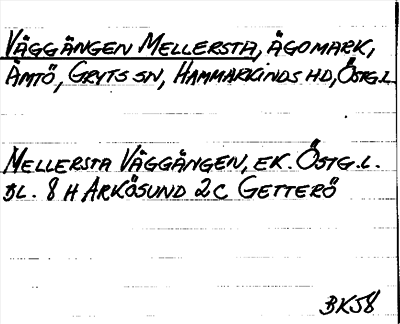 VÄGGÄNGEN MELLERSTA, ÄGOMARK,
ÄMTÖ, GRYTS SN, HAMMARKINDS HD, ÖSTG.L
MELLERSTA VÄGGÄNGEN, EK. ÖSTG.L.
BL. 8 H ARKÖSUND 2C GETTERÖ
BK58